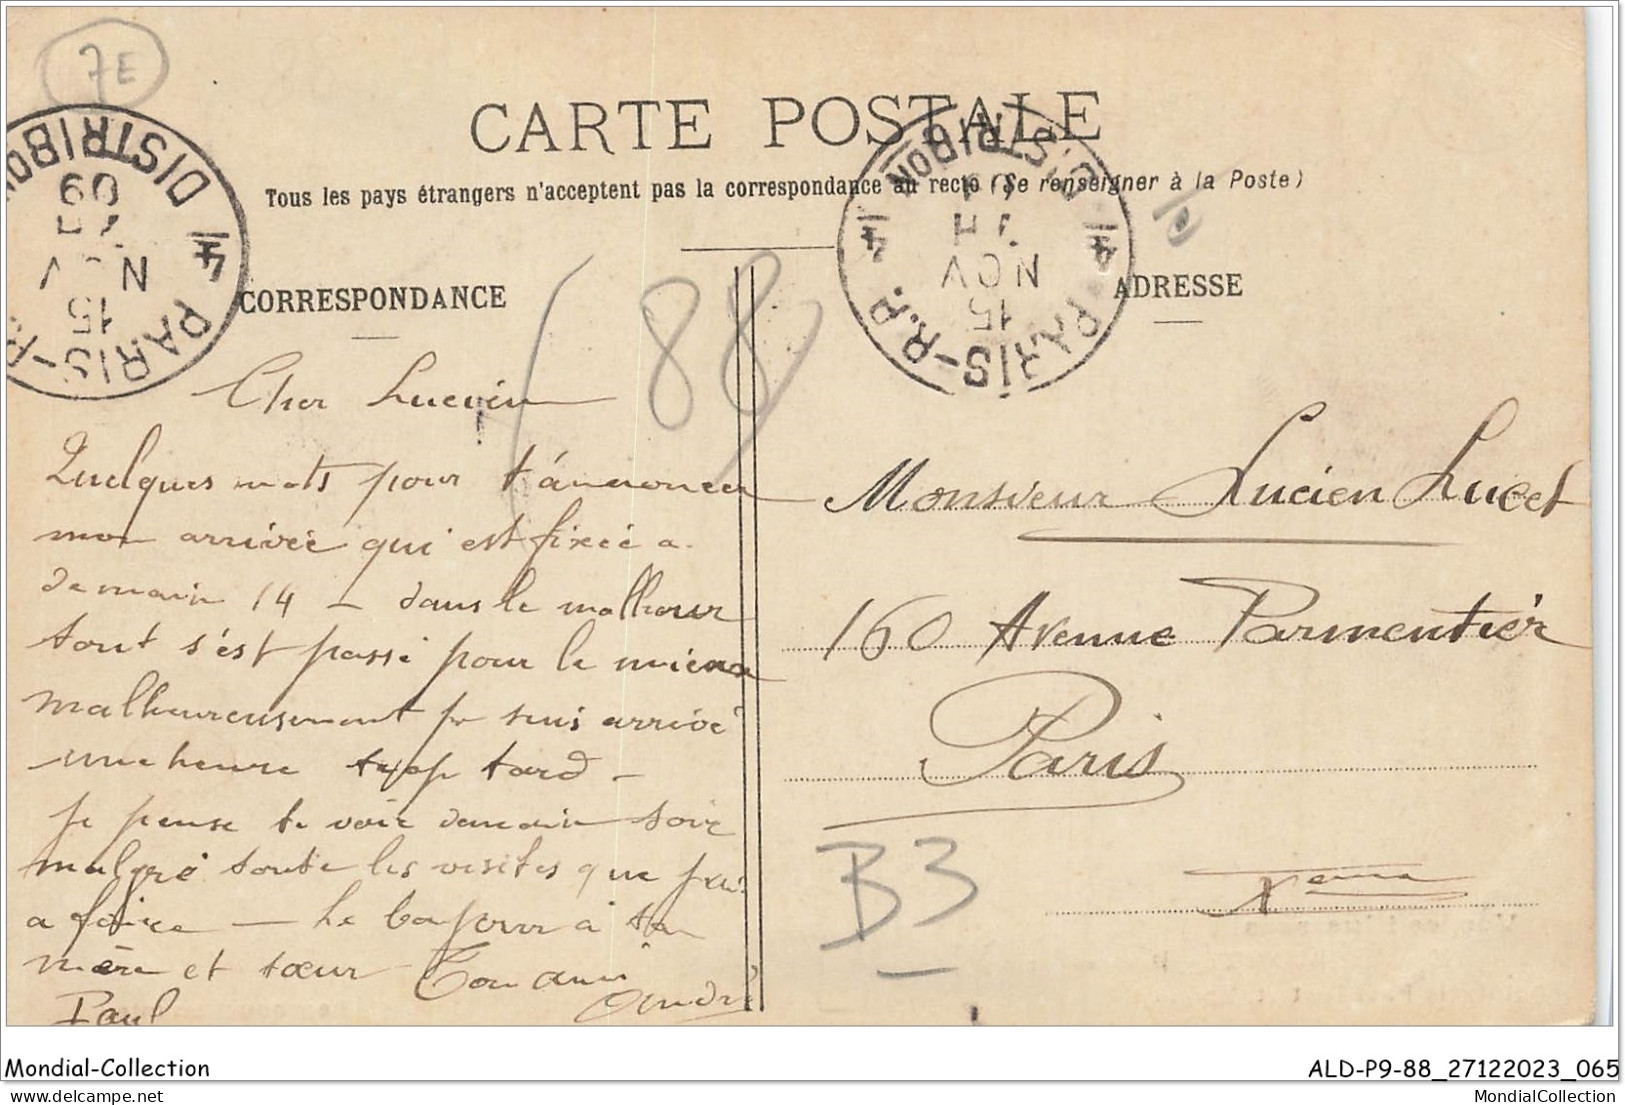 7E
CARTE POSTALE
Tous les pays étrangers n'acceptent pas la correspondance au recto (Se renseigner à la Poste)
PARIS-R.P. DISTRIBON
4
15
NOV
09
PARIS-R.P. DISTRIBON
4 4
15
NOV
CORRESPONDANCE
ADRESSE
(88)
Cher Lucien
Quelques mots pour t'annoncer
mon arrivée qui est fixée a
demain 14 - dans le malheur
tout s'est passé pour le mieux
malheureusement je suis arrivé
une heure trop tard -
Je pense te voir demain soir
malgré toute les visites que j'ai
a faire - Le bonjour à ta
mère et sœur Ton ami
Paul André
Monsieur Lucien Lucet
160 Avenue Parmentier
Paris
Xeme
B3
Mondial-Collection
ALD-P9-88_27122023_065
delcampe.net
MondialCollection